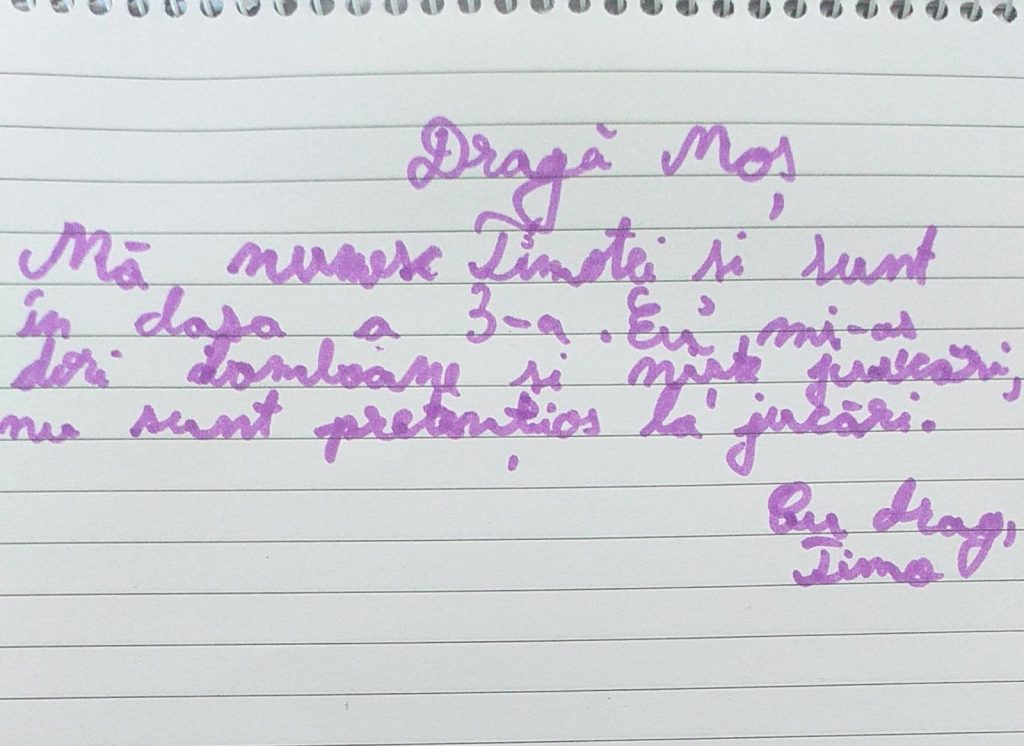 Dragă Moș
Mă numesc Timotei și sunt
în clasa a 3-a. Eu mi-aș
dori bomboane și niște jucări,
nu sunt pretențios la jucări.
Cu drag,
Timo